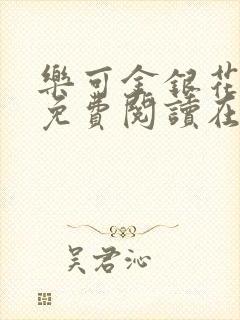 樂可金銀花
免費閱讀在
吳君沁